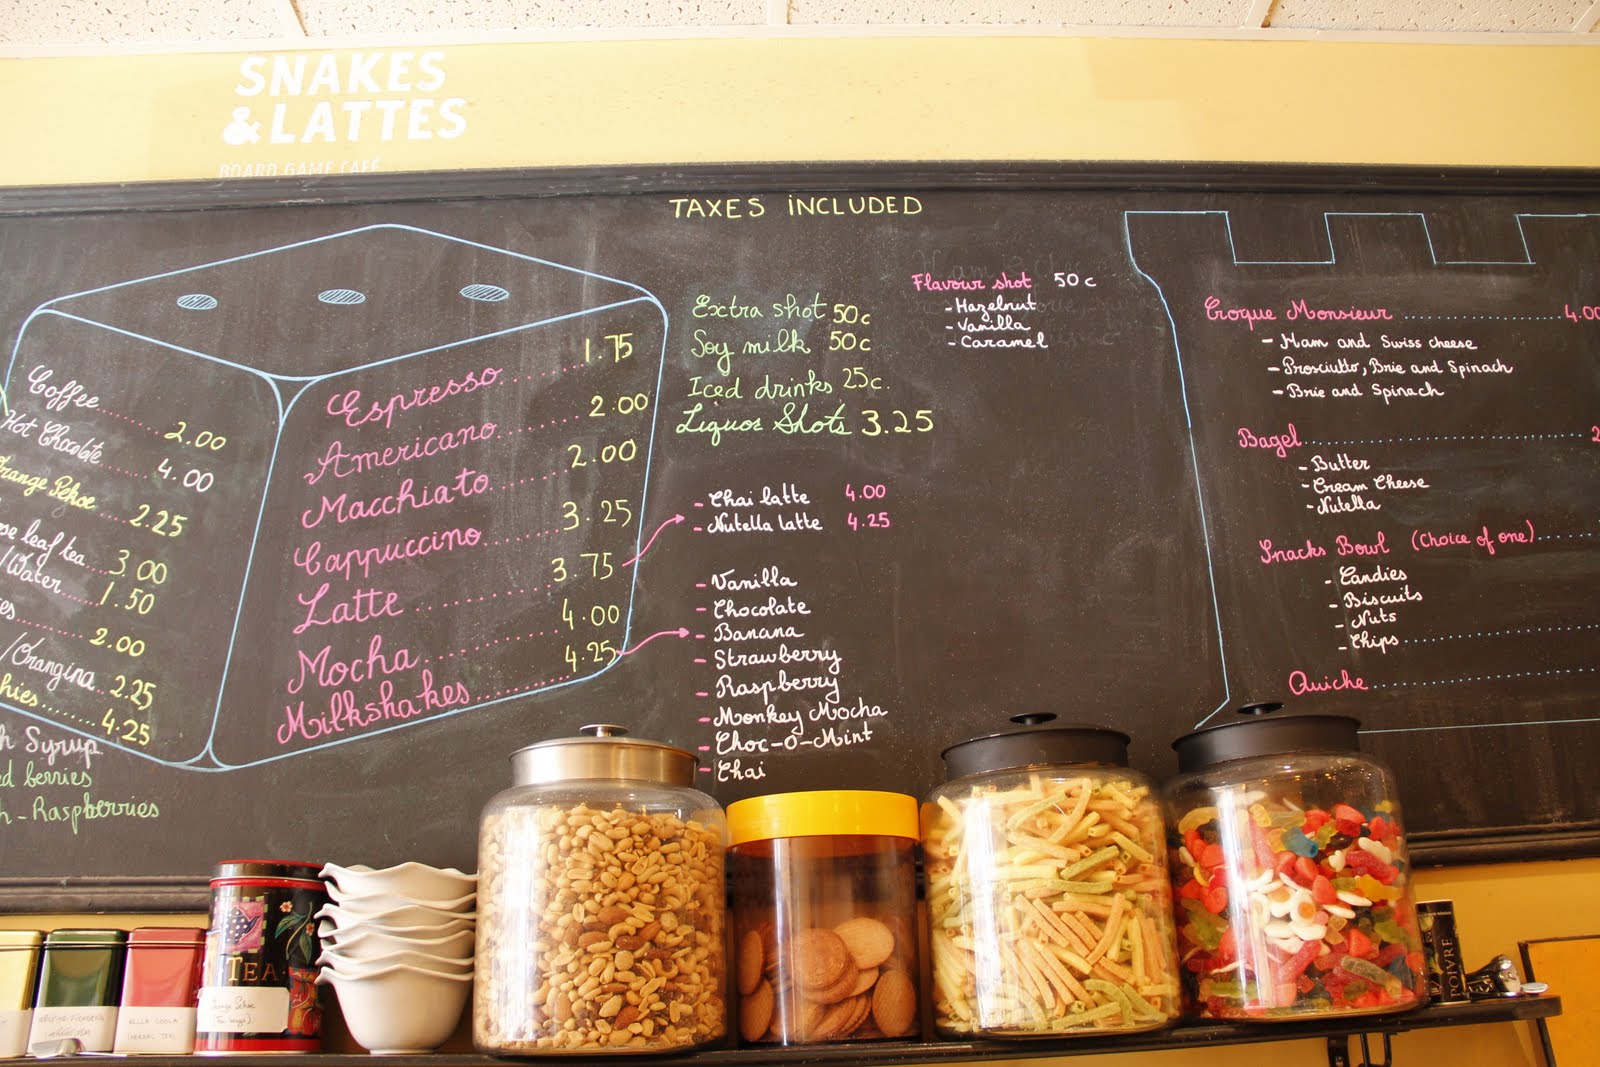 SNAKES
& LATTES
BOARD GAME CAFÉ
TAXES INCLUDED
Coffee 2.00
Hot Chocolate 4.00
Orange Pekoe 2.25
leaf tea 3.00
/Water 1.50
2.00
/Orangina 2.25
4.25
Syrup
berries
- Raspberries
Espresso 1.75
Americano 2.00
Macchiato 2.00
Cappuccino 3.25
Latte 3.75
Mocha 4.00
Milkshakes 4.25
Extra shot 50c
Soy milk 50c
Iced drinks 25c.
Liquor Shots 3.25
Flavour shot 50c
- Hazelnut
- Vanilla
- Caramel
- Chai latte 4.00
- Nutella latte 4.25
- Vanilla
- Chocolate
- Banana
- Strawberry
- Raspberry
- Monkey Mocha
- Choc-o-Mint
- Chai
Croque Monsieur 4.00
- Ham and Swiss cheese
- Prosciutto, Brie and Spinach
- Brie and Spinach
Bagel 2
- Butter
- Cream Cheese
- Nutella
Snacks Bowl (Choice of one)
- Candies
- Biscuits
- Nuts
- Chips
Quiche
TEA
Orange Pekoe
POIVRE